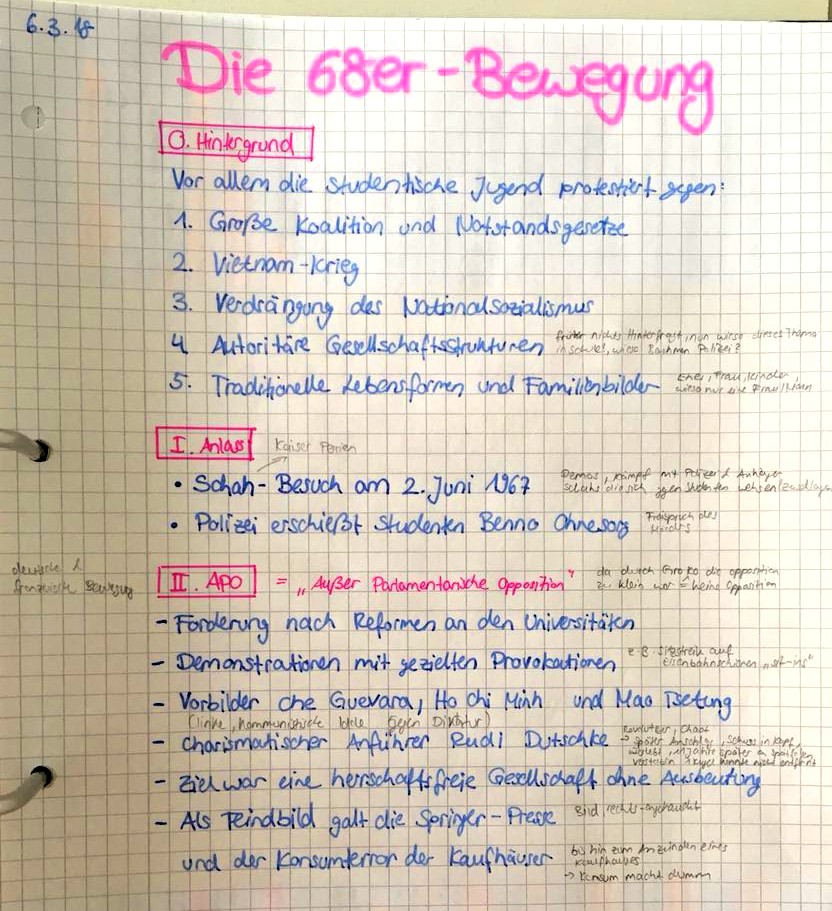 6.3.18
Die 68er-Bewegung
0. Hintergrund
Vor allem die studentische Jugend protestiert gegen:
1. Große Koalition und Notstandsgesetze
2. Vietnam-Krieg
3. Verdrängung des Nationalsozialismus
4 Autoritäre Gesellschaftsstrukturen
früher nichts Hinterfragt, nun wieso dieses Thema
in Schule, wieso Polizei?
5. Traditionelle Lebensformen und Familienbilder
Ehe, Frau, Kinder
wieso nur eine Frau/Mann
I. Anlass
Kaiser Persien
• Schah-Besuch am 2. Juni 1967
Demos, Kampf mit Polizei & Anhänger
Schahs die sich gegen Studenten wehren
• Polizei erschießt Studenten Benno Ohnesorg
Freispruch des
Mordes
deutsche &
französische Bewegung
II. APO = „Außer Parlamentarische Opposition"
da durch GroKo die opposition
zu klein war = keine Opposition
- Forderung nach Reformen an den Universitäten
- Demonstrationen mit gezielten Provokationen
z.B. Sitzstreik auf
Eisenbahnschienen „sit-ins"
- Vorbilder Che Guevara, Ho Chi Minh und Mao Tsetung
(linke, kommunistische Idole gegen Diktatur)
- Charismatischer Anführer Rudi Dutschke
→ später Anschlag, Schuss in Kopf,
überlebt, 11 Jahre später an
- Ziel war eine herrschaftsfreie Gesellschaft ohne Ausbeutung
- Als Feindbild galt die Springer-Presse
Bild, rechts-angehaucht
und der Konsumterror der Kaufhäuser
bis hin zum Anzünden eines
Kaufhauses
→ Konsum macht dumm